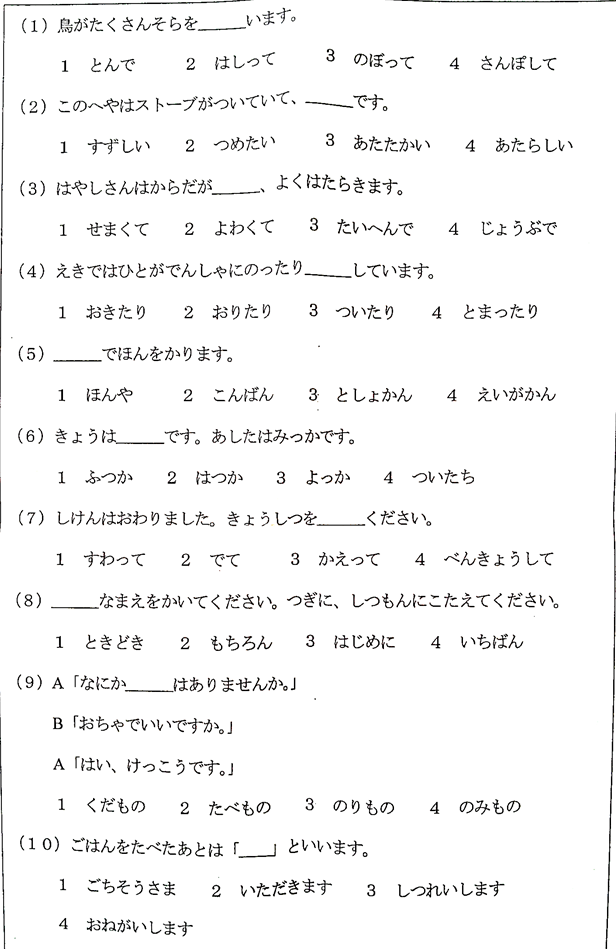 (1) 鳥がたくさんそらを_____います。
1 とんで 2 はしって 3 のぼって 4 さんぽして
(2) このへやはストーブがついていて、_____です。
1 すずしい 2 つめたい 3 あたたかい 4 あたらしい
(3) はやしさんはからだが_____、よくはたらきます。
1 せまくて 2 よわくて 3 たいへんで 4 じょうぶで
(4) えきではひとがでんしゃにのったり_____しています。
1 おきたり 2 おりたり 3 ついたり 4 とまったり
(5) _____でほんをかります。
1 ほんや 2 こんばん 3 としょかん 4 えいがかん
(6) きょうは_____です。あしたはみっかです。
1 ふつか 2 はつか 3 よっか 4 ついたち
(7) しけんはおわりました。きょうしつを_____ください。
1 すわって 2 でて 3 かえって 4 べんきょうして
(8) _____なまえをかいてください。つぎに、しつもんにこたえてください。
1 ときどき 2 もちろん 3 はじめに 4 いちばん
(9) A「なにか_____はありませんか。」
B「おちゃでいいですか。」
A「はい、けっこうです。」
1 くだもの 2 たべもの 3 のりもの 4 のみもの
(10) ごはんをたべたあとは「____」といいます。
1 ごちそうさま 2 いただきます 3 しつれいします
4 おねがいします